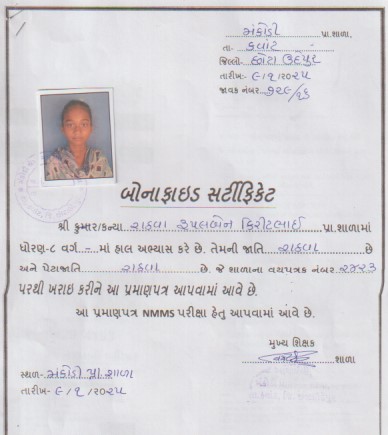 મંકોડી પ્રા.શાળા,
તા- કવાંટ
જિલ્લો- છોટા ઉદેપુર
તારીખ:- ૯/૧/૨૦૨૫
જાવક નંબર
બોનાફાઇડ સર્ટીફિકેટ
શ્રી કુમાર/કન્યા રાઠવા રૂપલબેન કિરીટભાઈ પ્રા.શાળામાં
ધોરણ-૮ વર્ગ - માં હાલ અભ્યાસ કરે છે. તેમની જાતિ રાઠવા છે
અને પેટાજાતિ રાઠવા છે. જે શાળાના વયપત્રક નંબર ૨૪૨૩
પરથી ખરાઇ કરીને આ પ્રમાણપત્ર આપવામાં આવે છે.
આ પ્રમાણપત્ર NMMS પરીક્ષા હેતુ આપવામાં આવે છે.
મુખ્ય શિક્ષક
શાળા
સ્થળ- મંકોડી પ્રા. શાળા
તારીખ- ૯/૧/૨૦૨૫